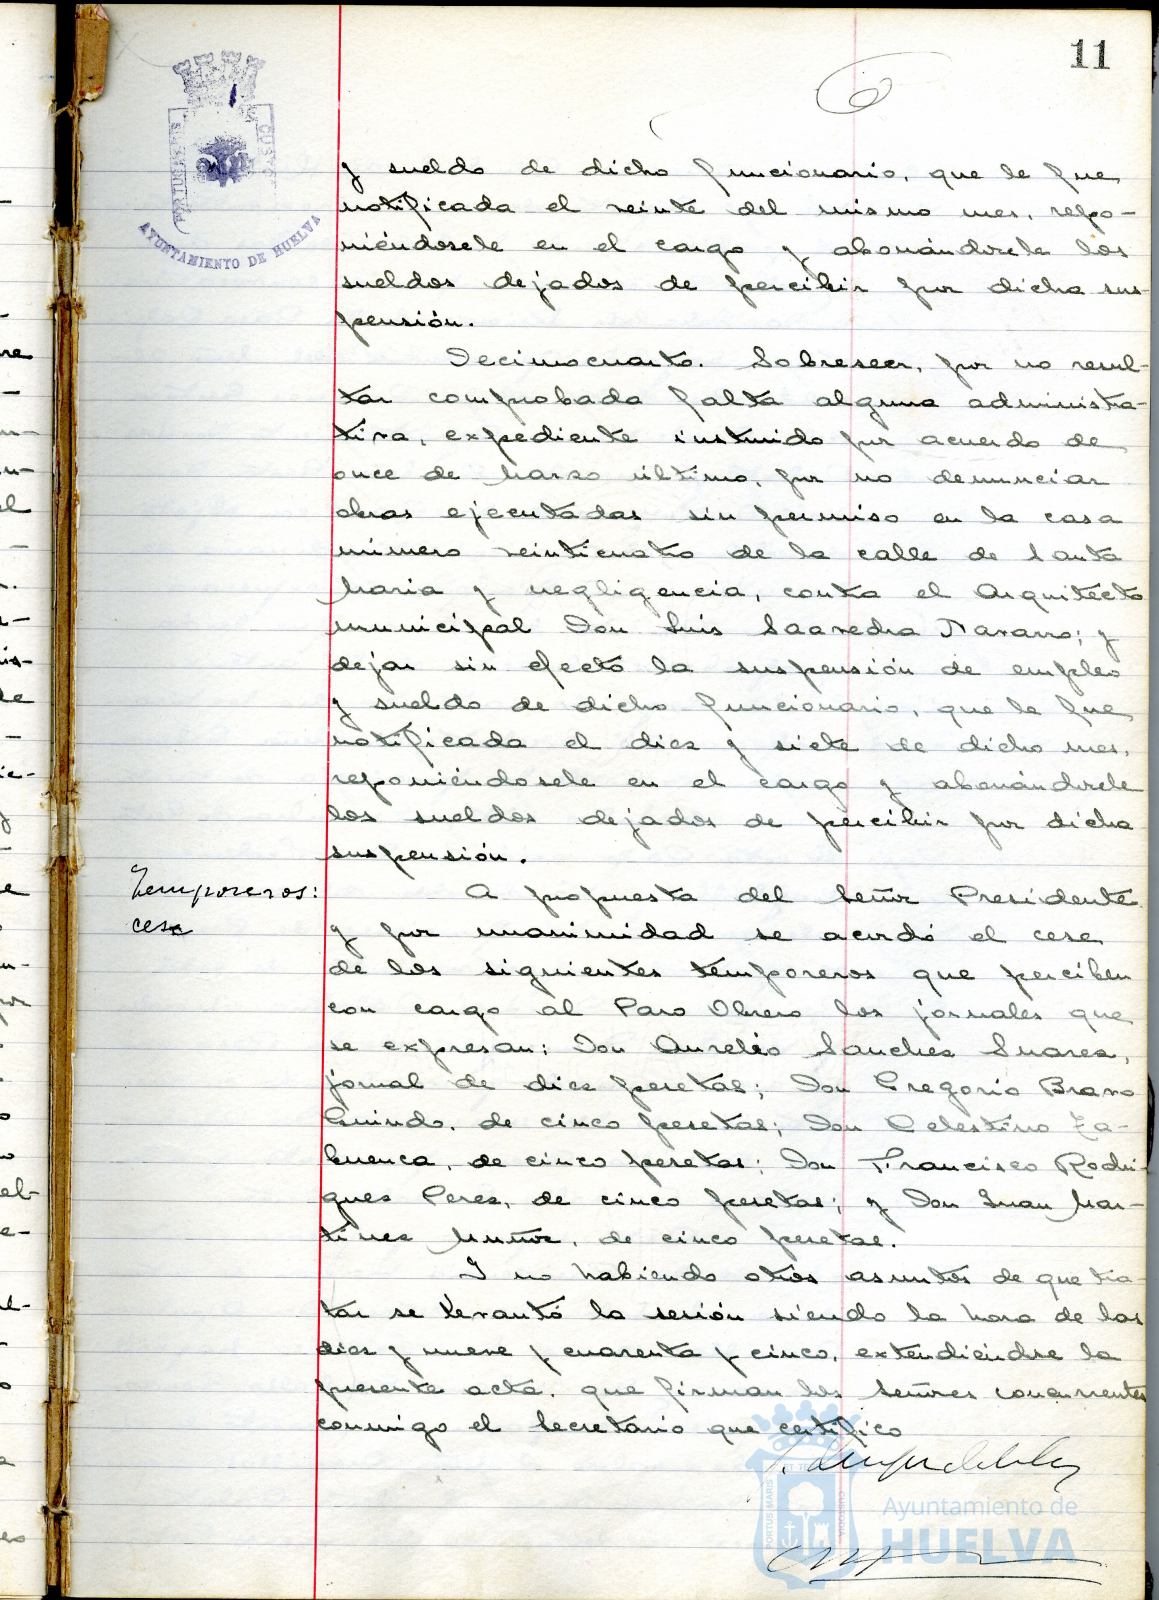 11
PORTUS MARIS
CUSTODIA
AYUNTAMIENTO DE HUELVA
y sueldo de dicho funcionario, que le fue
notificada el veinte del mismo mes, repo-
niéndosele en el cargo y abonándosele los
sueldos dejados de percibir por dicha sus-
pensión.
Decimocuarto. Sobreseer, por no resul-
tar comprobada falta alguna administra-
tiva, expediente instruido por acuerdo de
once de Marzo último, por no denunciar
obras ejecutadas sin permiso en la casa
número veinticuatro de la calle de Santa
María y negligencia, contra el Arquitecto
municipal Don Luis Saavedra Navarro; y
dejar sin efecto la suspensión de empleo
y sueldo de dicho funcionario, que le fue
notificada el diez y siete de dicho mes,
reponiéndosele en el cargo y abonándosele
los sueldos dejados de percibir por dicha
suspensión.
Temporeros:
cese
A propuesta del Señor Presidente
y por unanimidad se acordó el cese
de los siguientes temporeros que perciben
con cargo al Paro Obrero los jornales que
se expresan: Don Aurelio Sanchez Suarez,
jornal de diez pesetas; Don Gregorio Bravo
Guindo, de cinco pesetas; Don Celestino Za-
buenca, de cinco pesetas; Don Francisco Rodri-
guez Perez, de cinco pesetas; y Don Juan Mar-
tinez Muñoz, de cinco pesetas.
Y no habiendo otros asuntos de que tra-
tar se levantó la sesión siendo la hora de las
diez y nueve y cuarenta y cinco, extendiéndose la
presente acta, que firman los Señores concurrentes
conmigo el Secretario que certifico
PORTUS MARIS
CUSTODIA
Ayuntamiento de
HUELVA